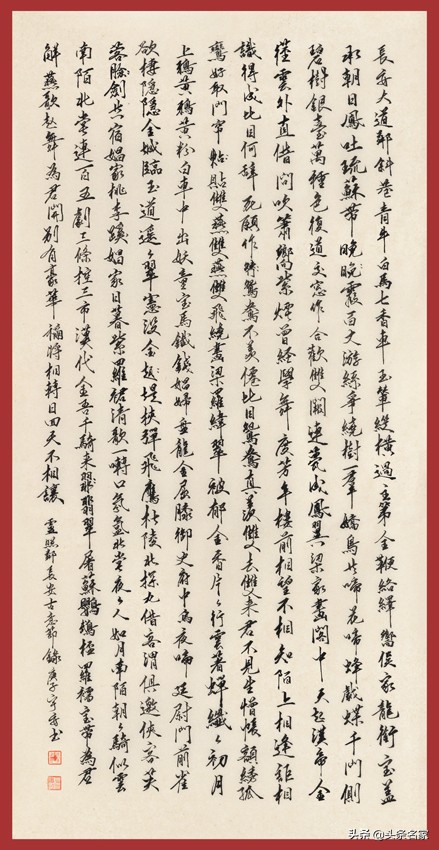 長安大道鄰斜巷青牛白馬七香車玉輦縱橫過主第金鞭絡繹嚮侯家龍銜寶蓋
承朝日鳳吐疏蘇帶晚晚霞百丈游絲爭繞樹一羣嬌鳥共啼花啼花戲蝶千門側
碧樹銀臺萬種色復道交窗作合歡雙闕連甍成鳳翼梁家畫閣中天起漢帝金
莖雲外直借問吹簫嚮紫煙曾經學舞度芳年樓前相望不相知陌上相逢詎相
識得成比目何辭死願作鴛鴦不羨僊比目鴛鴦真羨雙去雙來君不見生憎帳額綉孤
鸞好取門帘帖雙燕雙燕雙飛繞畫梁羅緯翠被郁金香片片行雲着蟬纖纖初月
上鴉黃鴉黃粉白車中出妖童寶馬鐵錢娼婦盤龍金屈膝御史府中烏夜啼廷尉門前雀
欲棲隱隱金城臨玉道遙遙翠憲沒金堤挾彈飛鷹杜陵北探丸借客渭俱邀俠客芙
蓉臉劍共宿娼家桃李蹊娼家日暮紫羅裙清歌一囀口氛氳北堂夜夜人如月南陌朝朝騎似雲
南陌北堂連百五劇三條控三市漢代金吾千騎來翡翡翠屠蘇鸚鵡杯羅襦寶帶為君
解燕歌趙舞為君開別有豪華稱將相轉日回天不相讓 盧照鄰長安古意節錄庚子宇秀書
头条 @头条名家